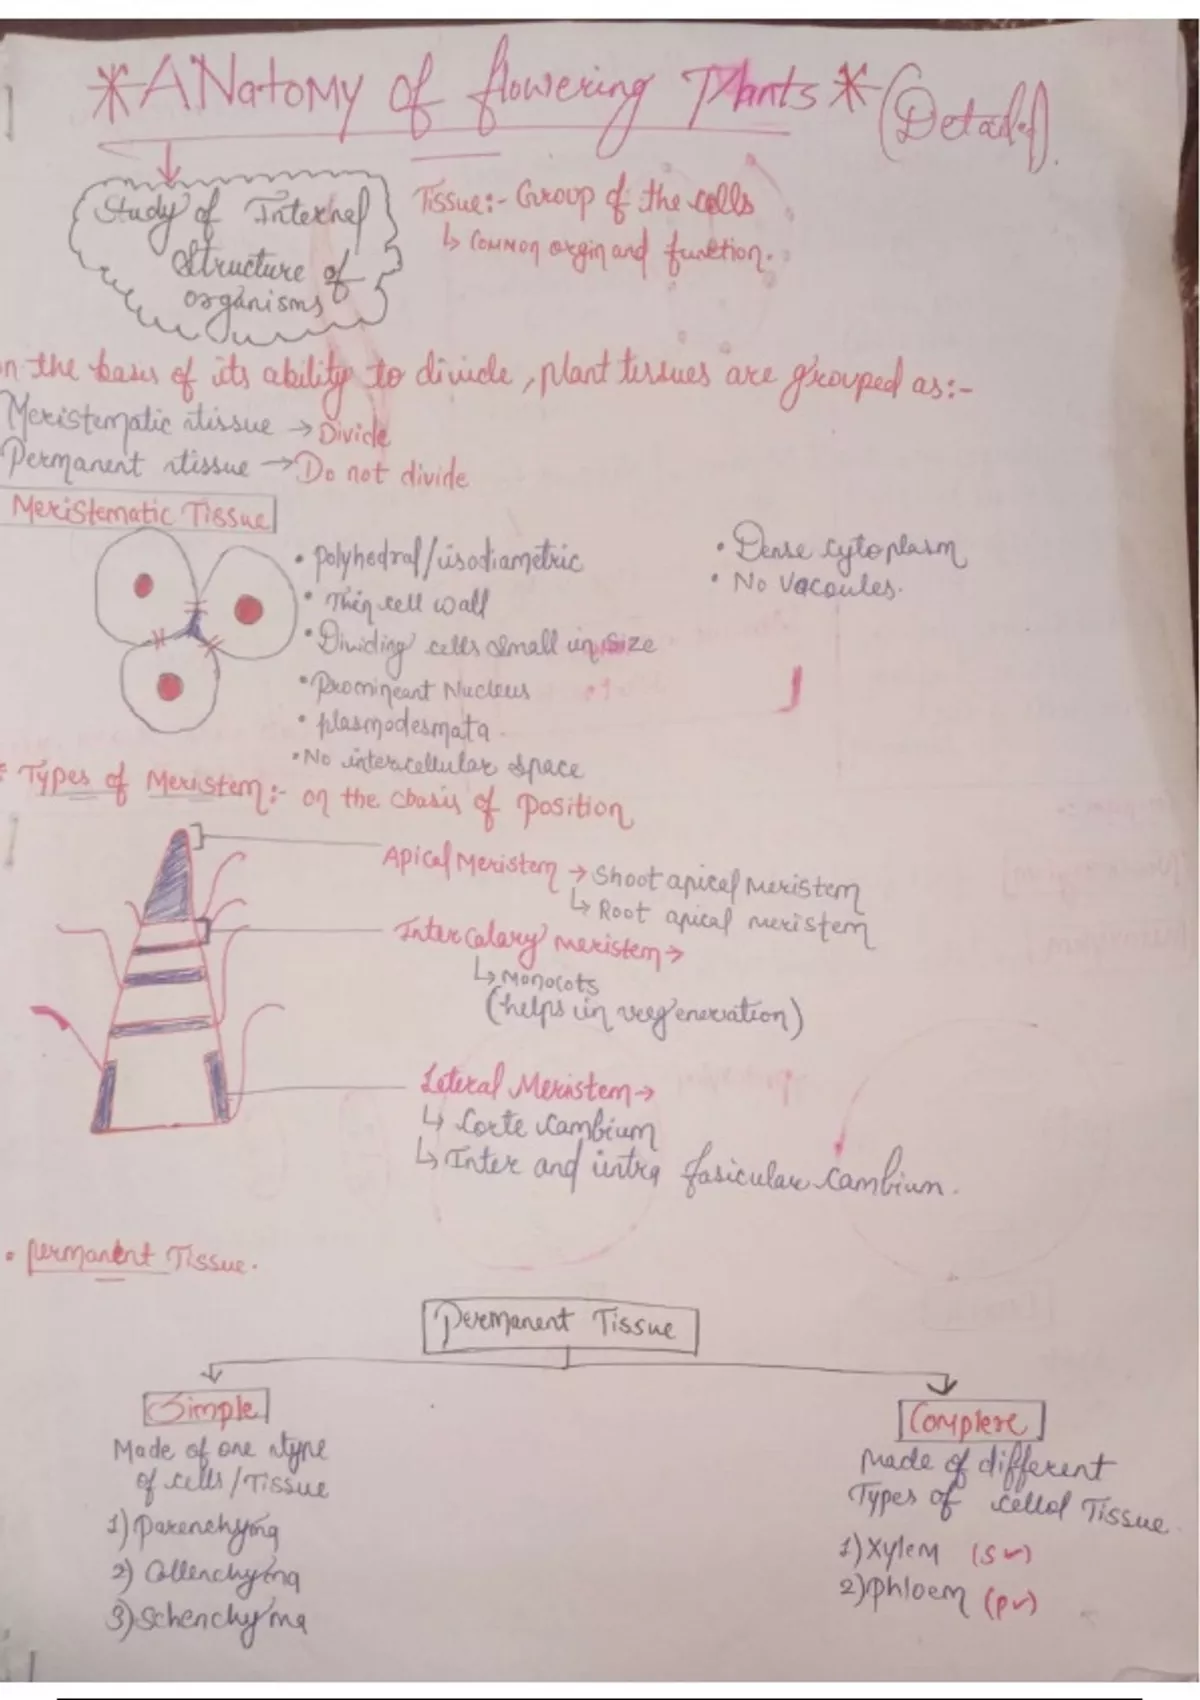 *ANatomy of flowering Plants* (Detailed).
Study of Internal
Structure of
organisms
Tissue:- Group of the cells
↳ Common orgin and function.
n the basis of its ability to divide, plant tissues are grouped as:-
Meristematic tissue → Divide
Permanent tissue → Do not divide
Meristematic Tissue
• polyhedral/isodiametric
• Thin cell wall
• Dividing cells small in size
• Prominent Nucleus
• plasmodesmata.
• No intercellular space
• Dense cytoplasm
• No Vacoules.
* Types of Meristem:- on the basis of position
Apical Meristem → Shoot apical meristem
↳ Root apical meristem
Intercalary meristem →
↳ Monocots
(helps in regeneration)
Leteral Meristem →
↳ Corke cambium
↳ Inter and intra fasicular cambium.
• permanent Tissue.
Permanent Tissue
Simple
Made of one type
of cells/Tissue
1) Parenchyma
2) Collenchyma
3) Schenchyma
Complexe
Made of different
Types of Tissue.
1) Xylem
2) Phloem